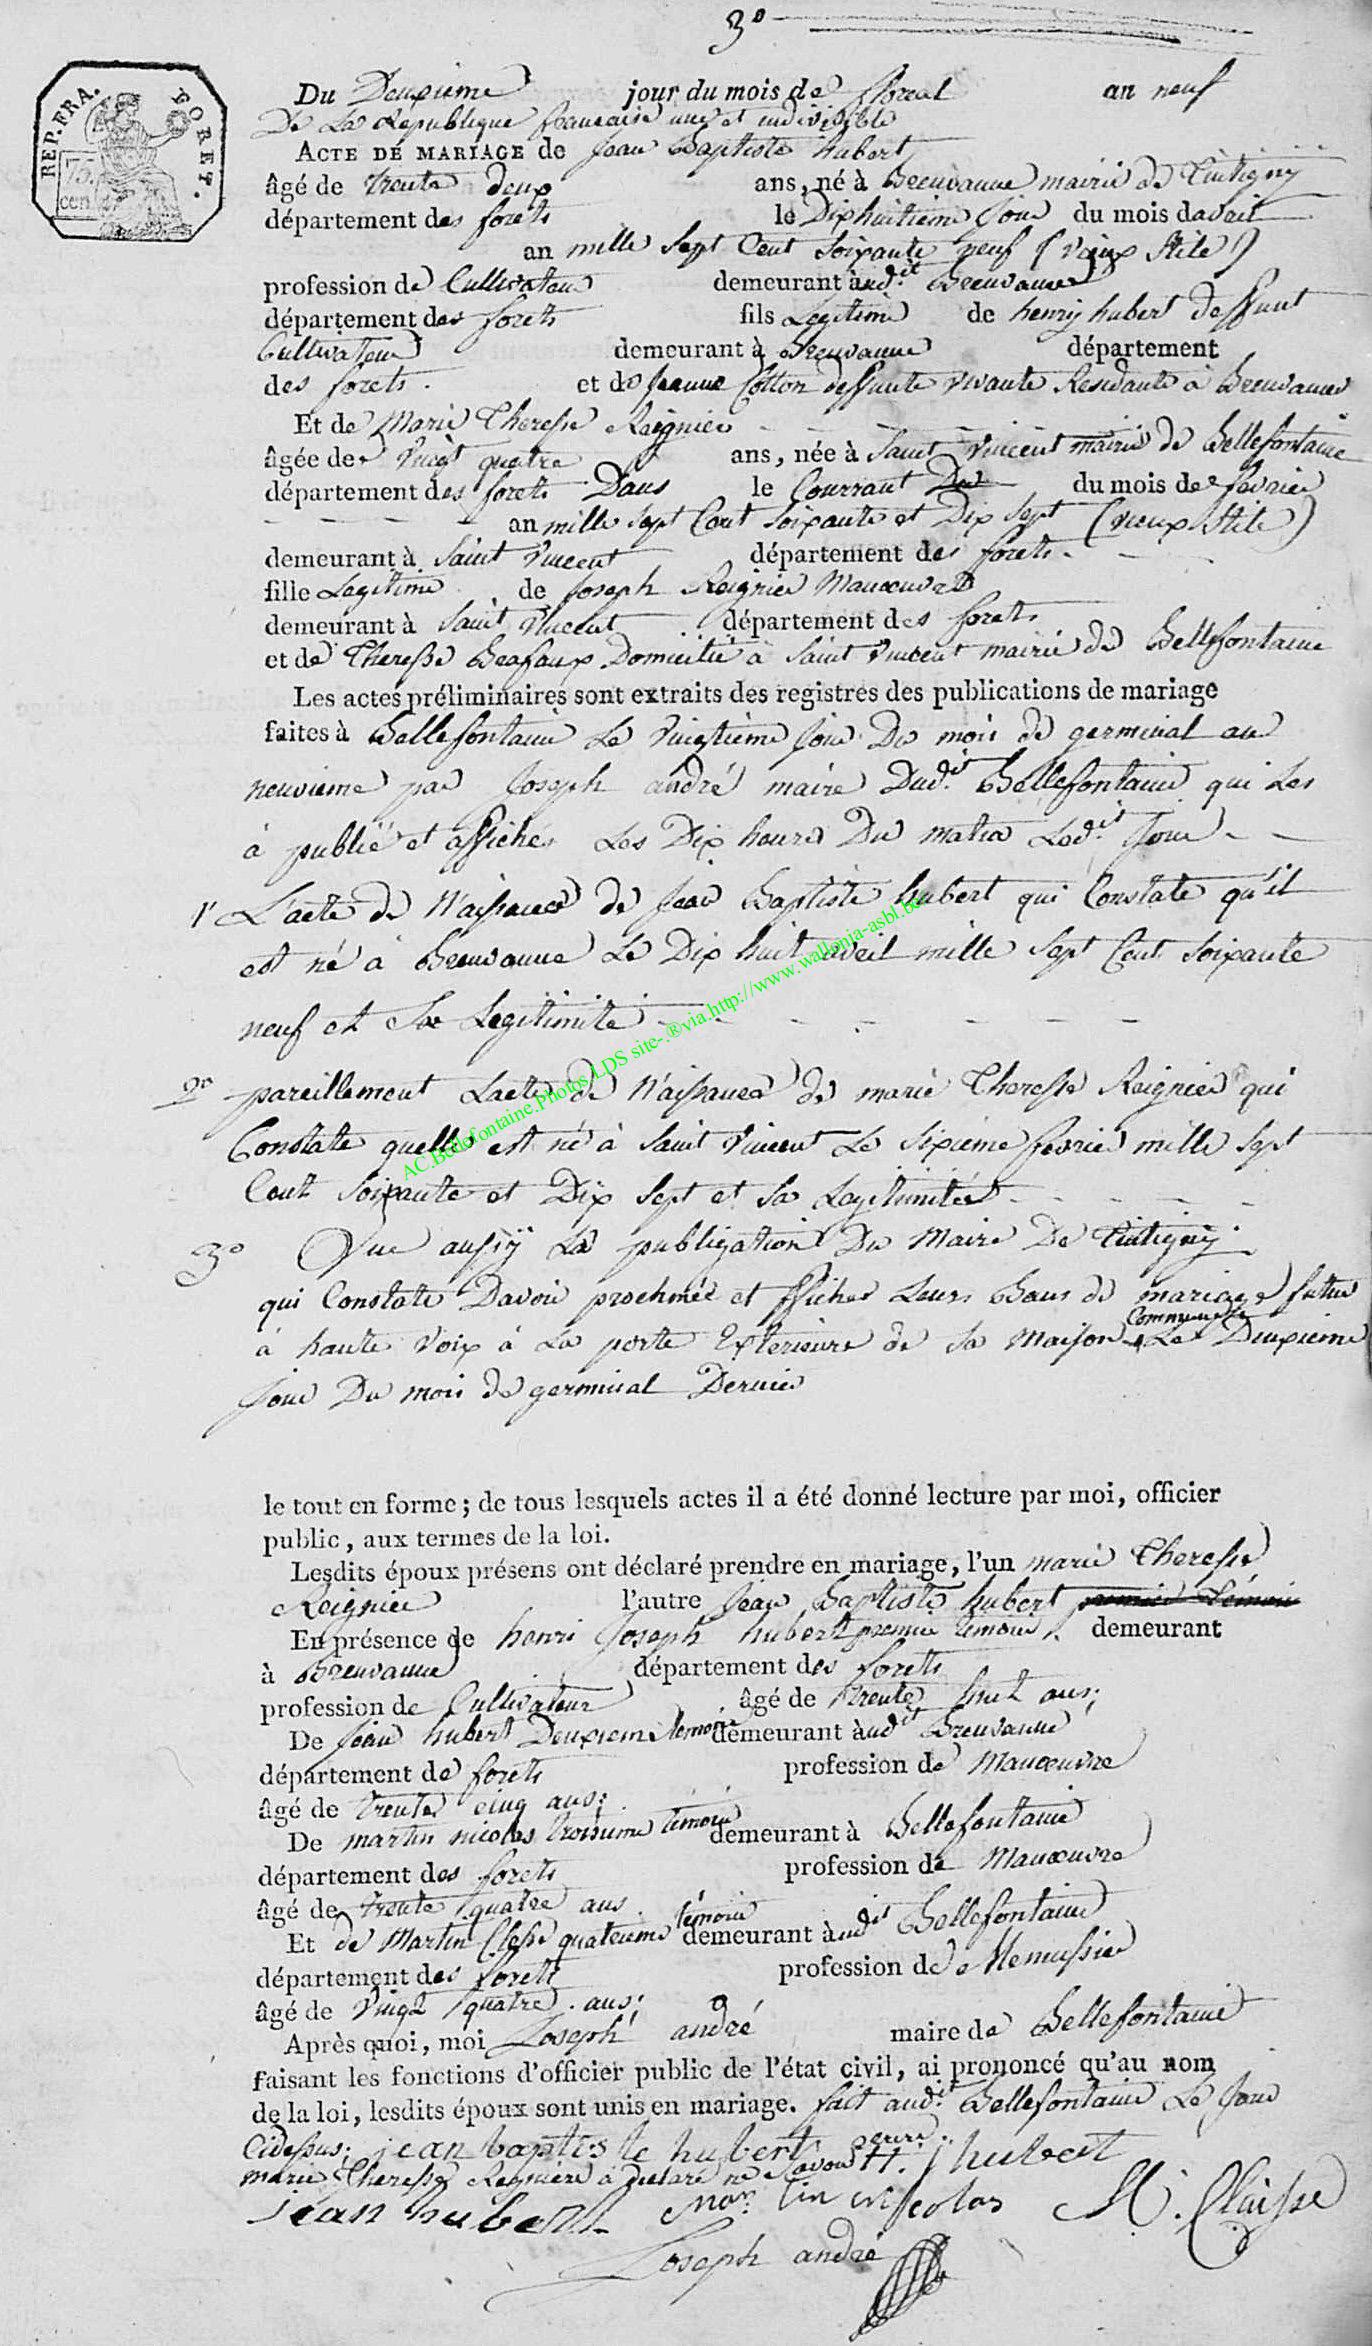 3º
REP. FRA. FORET.
75. cen.
Du Deuxieme jour du mois de floreal an neuf
De La Republique francaise une et indivisible
ACTE DE MARIAGE de Jean Baptiste hubert
âgé de trente deux ans, né à Breuvanne mairie de Tintigny
département des forets le Dixhuitieme Jour du mois davril
an mille Sept Cent Soixante neuf (vieux Stile)
profession de Cultivateur demeurant audit Breuvanne
département des forets fils Legitime de henry hubert deffunt
Cultivateur demeurant à Breuvanne département
des forets. et de Jeanne Cotton deffunte vivante Residante à Breuvanne
Et de Marie Theresse Reignier
âgée de vingt quatre ans, née à Saint Vincent mairie de Bellefontaine
département des forets Dans le Courrant du mois de fevrier
an mille Sept Cent Soixante et Dix Sept (vieux Stile)
demeurant à Saint Vincent département des forets
fille Legitime de Joseph Reignier Manoeuvre
demeurant à Saint Vincent département des forets
et de Theresse Beafaux Domicilié à Saint Vincent mairie de Bellefontaine
Les actes préliminaires sont extraits des registres des publications de mariage
faites à Bellefontaine Le vingtieme Jour Du mois de germinal an
neuvieme par Joseph andré maire Dudit Bellefontaine qui Les
à publié et affichés Les Dix heures Du matin Ledit Jour
1º L'acte de Naissance de Jean Baptiste hubert qui Constate qu'il
est né à Breuvanne Le Dix huit avril mille Sept Cent Soixante
neuf et Sa Legitimité
2º pareillement Lacte de Naissance de marie Theresse Reignier qui
Constate quelle est né à Saint Vincent Le Sixieme fevrier mille Sept
Cent Soixante et Dix Sept et Sa Legitimitée
3º Vue aussy La publigation Du Maire De Tintigny
qui Constate Davoir proclmée et fficher Leurs Bans de mariage futur
à haute voix à La porte Exterieure de Sa Maison Commune Le Deuxieme
Jour Du mois de germinal Dernier
AC.Bellefontaine.Photos.LDS site-.®via.http://www.wallonia-asbl.be
le tout en forme ; de tous lesquels actes il a été donné lecture par moi, officier
public, aux termes de la loi.
Lesdits époux présens ont déclaré prendre en mariage, l'un marie Theresse
Reignier l'autre Jean Baptiste hubert premier témoin
En présence de henri Joseph hubert premier temoin. demeurant
à Breuvanne département des forets
profession de Cultivateur âgé de trente huit ans;
De Jean hubert Deuxieme temoin demeurant audit Breuvanne
département de forets profession de Manoeuvre
âgé de trente cinq ans;
De martin nicolas troisieme témoin demeurant à Bellefontaine
département des forets profession de Manoeuvre
âgé de trente quatre ans
Et de Martin Clesse quatrieme témoin demeurant audit Bellefontaine
département des forets profession de Menussier
âgé de vingt quatre ans;
Après quoi, moi Joseph andré maire de Bellefontaine
faisant les fonctions d'officier public de l'état civil, ai prononcé qu'au nom
de la loi, lesdits époux sont unis en mariage. fait audit Bellefontaine Le Jour
Cidessus; jean baptiste hubert
marie Theresse Regniere à declaré ne Savoir ecrire. H. j hubert
jean hubert Martin nicolas M. Claisse
Joseph andré